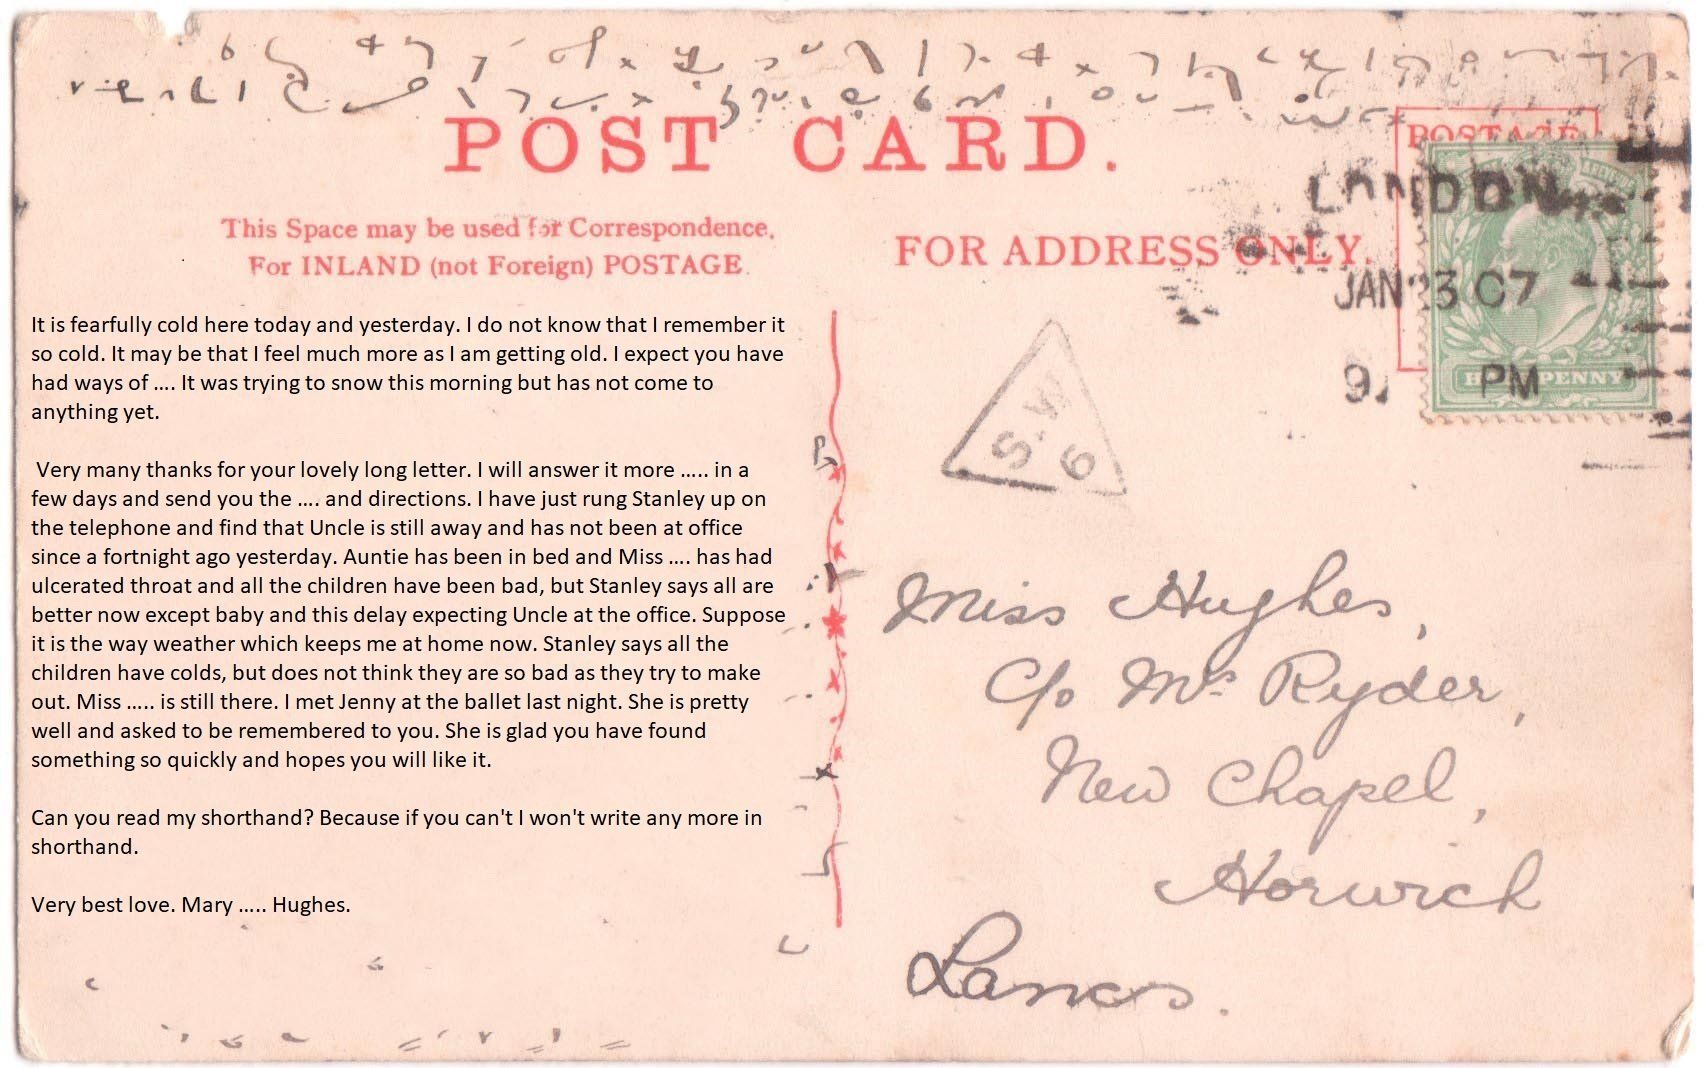 POST CARD.
This Space may be used for Correspondence,
For INLAND (not Foreign) POSTAGE.
FOR ADDRESS ONLY.
POSTAGE
LONDON
JAN 23 07
9. PM
HALFPENNY
S.W
6
It is fearfully cold here today and yesterday. I do not know that I remember it
so cold. It may be that I feel much more as I am getting old. I expect you have
had ways of .... It was trying to snow this morning but has not come to
anything yet.
Very many thanks for your lovely long letter. I will answer it more ..... in a
few days and send you the .... and directions. I have just rung Stanley up on
the telephone and find that Uncle is still away and has not been at office
since a fortnight ago yesterday. Auntie has been in bed and Miss .... has had
ulcerated throat and all the children have been bad, but Stanley says all are
better now except baby and this delay expecting Uncle at the office. Suppose
it is the way weather which keeps me at home now. Stanley says all the
children have colds, but does not think they are so bad as they try to make
out. Miss ..... is still there. I met Jenny at the ballet last night. She is pretty
well and asked to be remembered to you. She is glad you have found
something so quickly and hopes you will like it.
Can you read my shorthand? Because if you can't I won't write any more in
shorthand.
Very best love. Mary ..... Hughes.
Miss Hughes,
C/o Mrs Ryder,
New Chapel,
Horwich
Lancs.